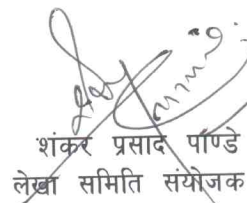 शंकर प्रसाद पाण्डे
लेखा समिति संयोजक